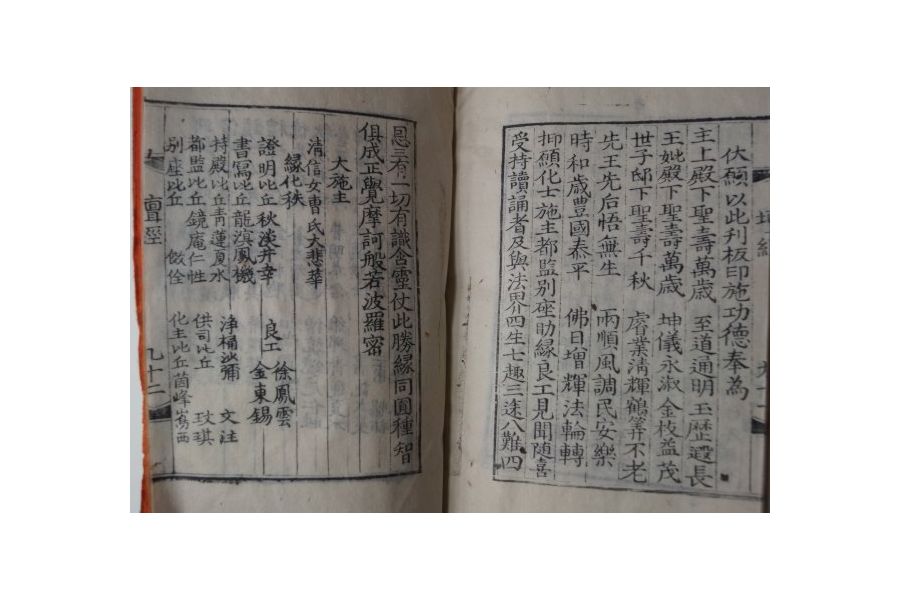 伏願以此刋板印施功德奉為
主上殿下聖壽萬歲 至道通明玉歷遐長
王妣殿下聖壽萬歲 坤儀永淑金枝益茂
世子邸下聖壽千秋 睿業淸輝鶴筭不老
先王先后悟無生 雨順風調民安樂
時和歲豊國泰平 佛日增輝法輪轉
抑願化士施主都監別座助緣良工見聞随喜
受持讀誦者及與法界四生七趣三途八難四
恩三有一切有識含靈仗此勝緣同圓種智
俱成正覺摩訶般若波羅蜜
大施主
清信女曹氏大悲華
緣化秩
證明比丘秋淡井幸 良工 徐鳳雲
書寫比丘龍滇鳳機 金東錫
持殿比丘青蓮夏水 浄桶沙彌 文注
都監比丘鏡庵仁性 供司比丘 玟琪
別座比丘 化主比丘茵峰
九十二